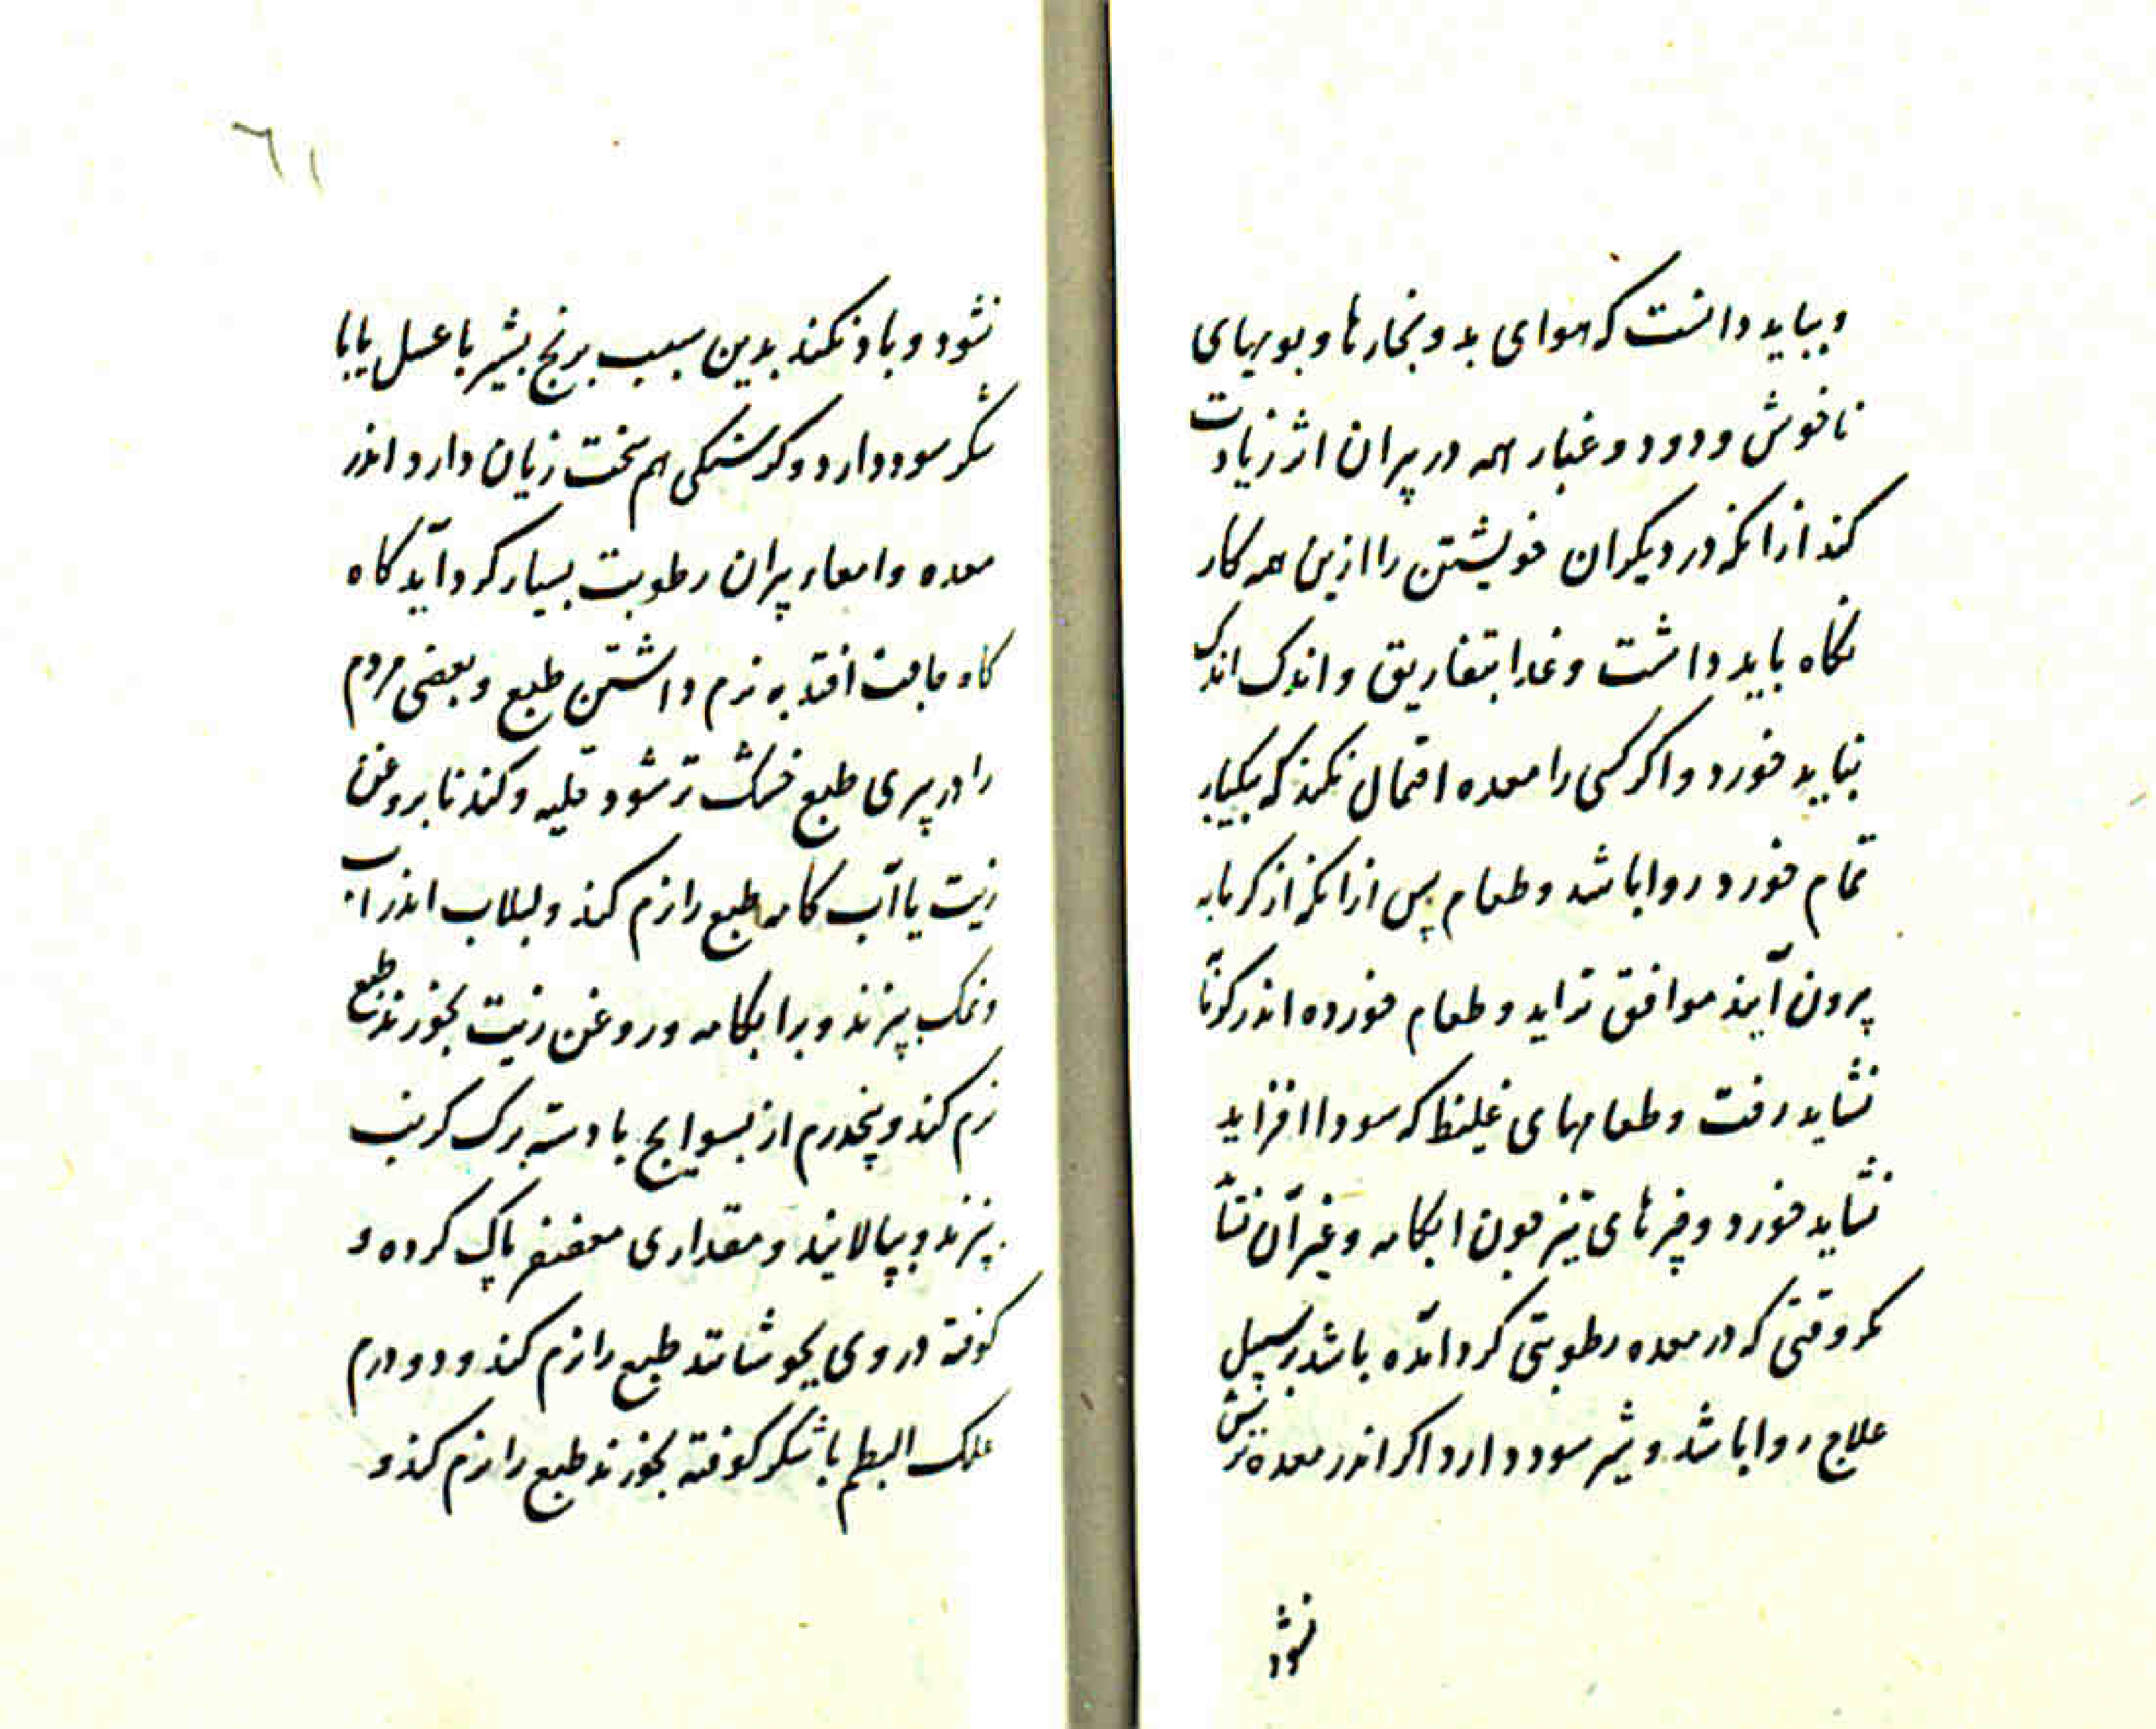 و بباید دانست که هوای بد و بخارها و بویهای
ناخوش و دود و غبار همه در پیران اثر زیادت
کند از انکه در دیکران خویشتن را ازین همه کار
نکاه باید داشت و غذا بتفاریق و اندک اندک
بباید خورد و اکر کسی را معده احتمال نکند که بیکبار
تمام خورد روا باشد و طعام پس از انکه از کرمابه
بیرون آیند موافق تر اید و طعام خورده اندر کرمابه
نشاید رفت و طعامهای غلیظ که سودا افزاید
نشاید خورد و چیزهای تیز چون ابکامه و غیر آن نشا
مکر وقتی که در معده رطوبتی کرد امده باشد بر سبیل
علاج روا باشد و شیر سود دارد اکر اندر معده ترش
نشود
٦١
نشود و باد نکند بدین سبب برنج بشیر با عسل یا با
شکر سود دارد و کرسنکی هم سخت زیان دارد اندر
معده و امعاء پیران رطوبت بسیار کرد آید کاه
کاه حاجت افتد به نرم داشتن طبع و بعضی مردم
را در پیری طبع خشک تر شود قلیه و کندنا بروغن
زیت یا آب کامه طبع را نرم کند و لبلاب اندر آب
و نمک بپزند و برابکامه و روغن زیت بخورند طبع
نرم کند و پنجدرم از بسفایج با دسته برک کرنب
بپزند و بپالایند و مقداری معصفر پاک کرده و
کوفته در وی بجوشانند طبع را نرم کند و دو درم
علک البطم با شکر کوفته بخورند طبع را نرم کند و